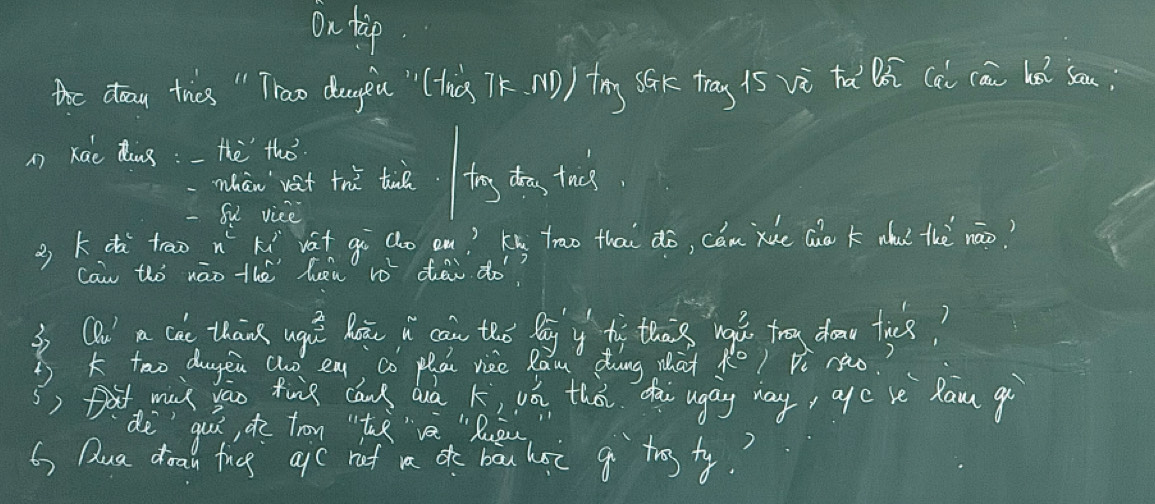 Ôn tập.
Đọc đoạn trích "Trao duyên" (trích TK_ND) trg SGK trang 15 và trả lời các câu hỏi sau:
1) Xác định: - thể thơ.
- nhân vật trữ tình. trg đoạn trích.
- Sự việc
2, K đã trao n~ kỉ vật gì cho em? Khi trao thái độ, cảm xúc của K như thế nào?
Câu thơ nào thể hiện rõ điều đó?
3, Chỉ ra các thành ngữ hoặc n~ câu thơ lấy ý từ thành ngữ trong đoạn trích?
4, K trao duyên cho em có phải việc làm đúng nhất ko? Vì sao?
5, Đặt mình vào tình cảnh của K, với thời đại ngày nay, a/c sẽ làm gì
để giữ đc tròn "tình" và "hiếu"
6, Qua đoạn trích a/c rút ra đc bài học gì trg ty?